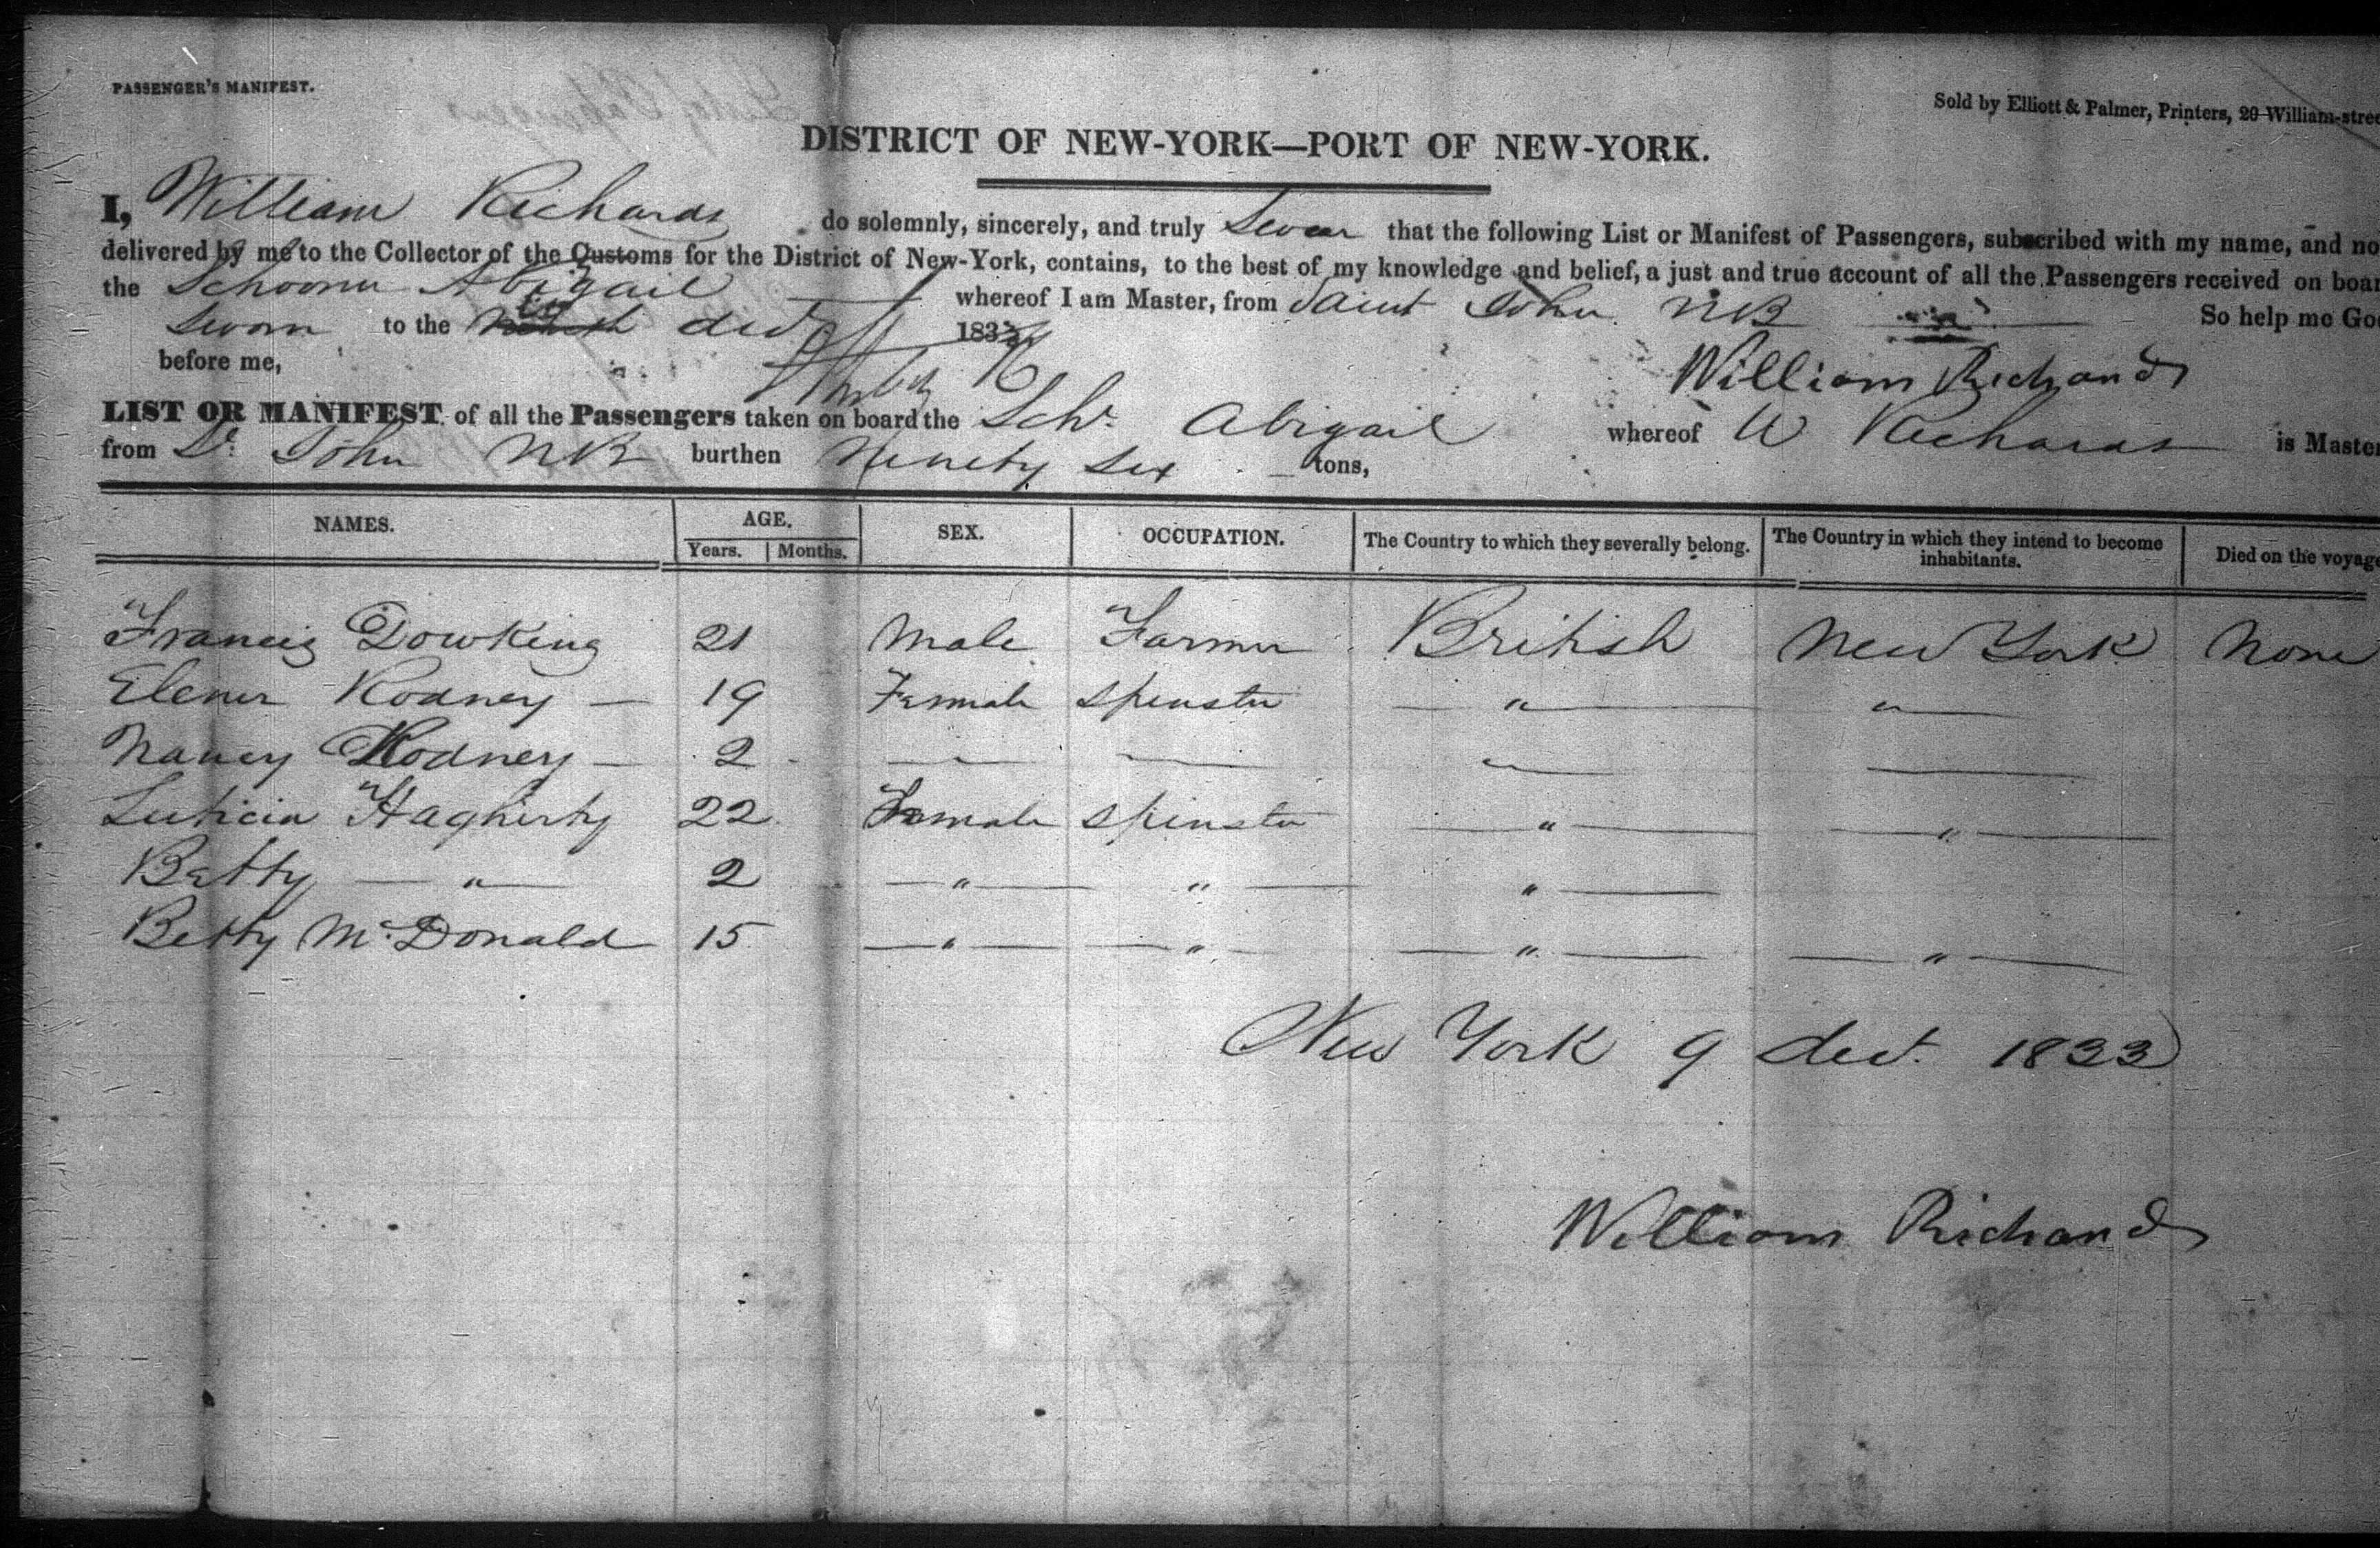 PASSENGER'S MANIFEST.
Sold by Elliott & Palmer, Printers, 20 William-stree
DISTRICT OF NEW-YORK—PORT OF NEW-YORK.
I, William Richards do solemnly, sincerely, and truly Swear that the following List or Manifest of Passengers, subscribed with my name, and no
delivered by me to the Collector of the Customs for the District of New-York, contains, to the best of my knowledge and belief, a just and true account of all the Passengers received on boar
the Schooner Abigail whereof I am Master, from Saint John NB So help me Go
Sworn to the 183
before me,
William Richards
LIST OR MANIFEST of all the Passengers taken on board the Schr. Abigail whereof W Richards is Master
from St. John NB burthen Ninety Six tons,
NAMES. AGE. Years. Months. SEX. OCCUPATION. The Country to which they severally belong. The Country in which they intend to become inhabitants. Died on the voyage
Francis Dowking 21 Male Farmer British New York None
Elener Rodney — 19 Female Spinster — " — " —
Nancy Rodney — 2 — — — —
Luticia Hagherty 22 Female Spinster — " — — " —
Betty — " — 2 — " — " — " —
Betty McDonald 15 — " — — " — — " — — " —
New York 9 dect. 1833
William Richards